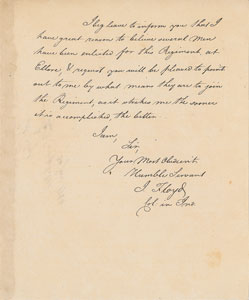 I beg leave to inform you that I
have great reason to believe several Men
have been enlisted for this Regiment at
& request you will be pleased to point
out to me by what means they are to join
the Regiment, as it strikes me the sooner
it is accomplished, the better.
I am,
Sir,
Your Most Obedient
Humble Servant
J Floyd,
Col